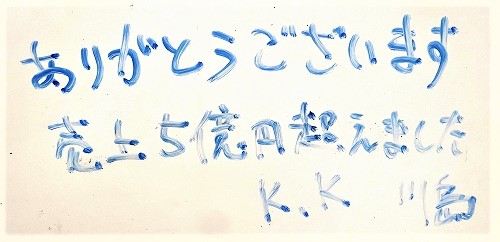 ありがとうございます
売上5億円超えました
K.K 川島